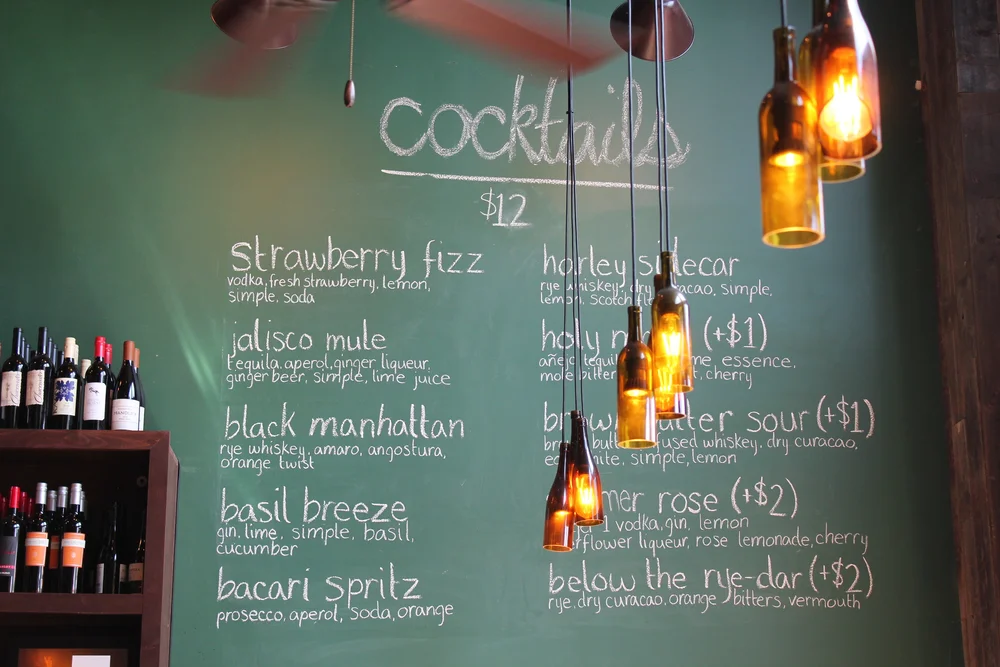 cocktails
$12
strawberry fizz
vodka, fresh strawberry, lemon,
simple, soda
jalisco mule
tequila, aperol, ginger liqueur,
ginger beer, simple, lime juice
black manhattan
rye whiskey, amaro, angostura,
orange twist
basil breeze
gin, lime, simple, basil,
cucumber
bacari spritz
prosecco, aperol, soda, orange
harley sidecar
rye whiskey, dry curacao, simple,
lemon, scotch
holy (+$1)
essence,
cherry
sour (+$1)
whiskey, dry curacao,
simple, lemon
rose (+$2)
vodka, gin, lemon
liqueur, rose lemonade, cherry
below the rye-dar (+$2)
rye, dry curacao, orange bitters, vermouth